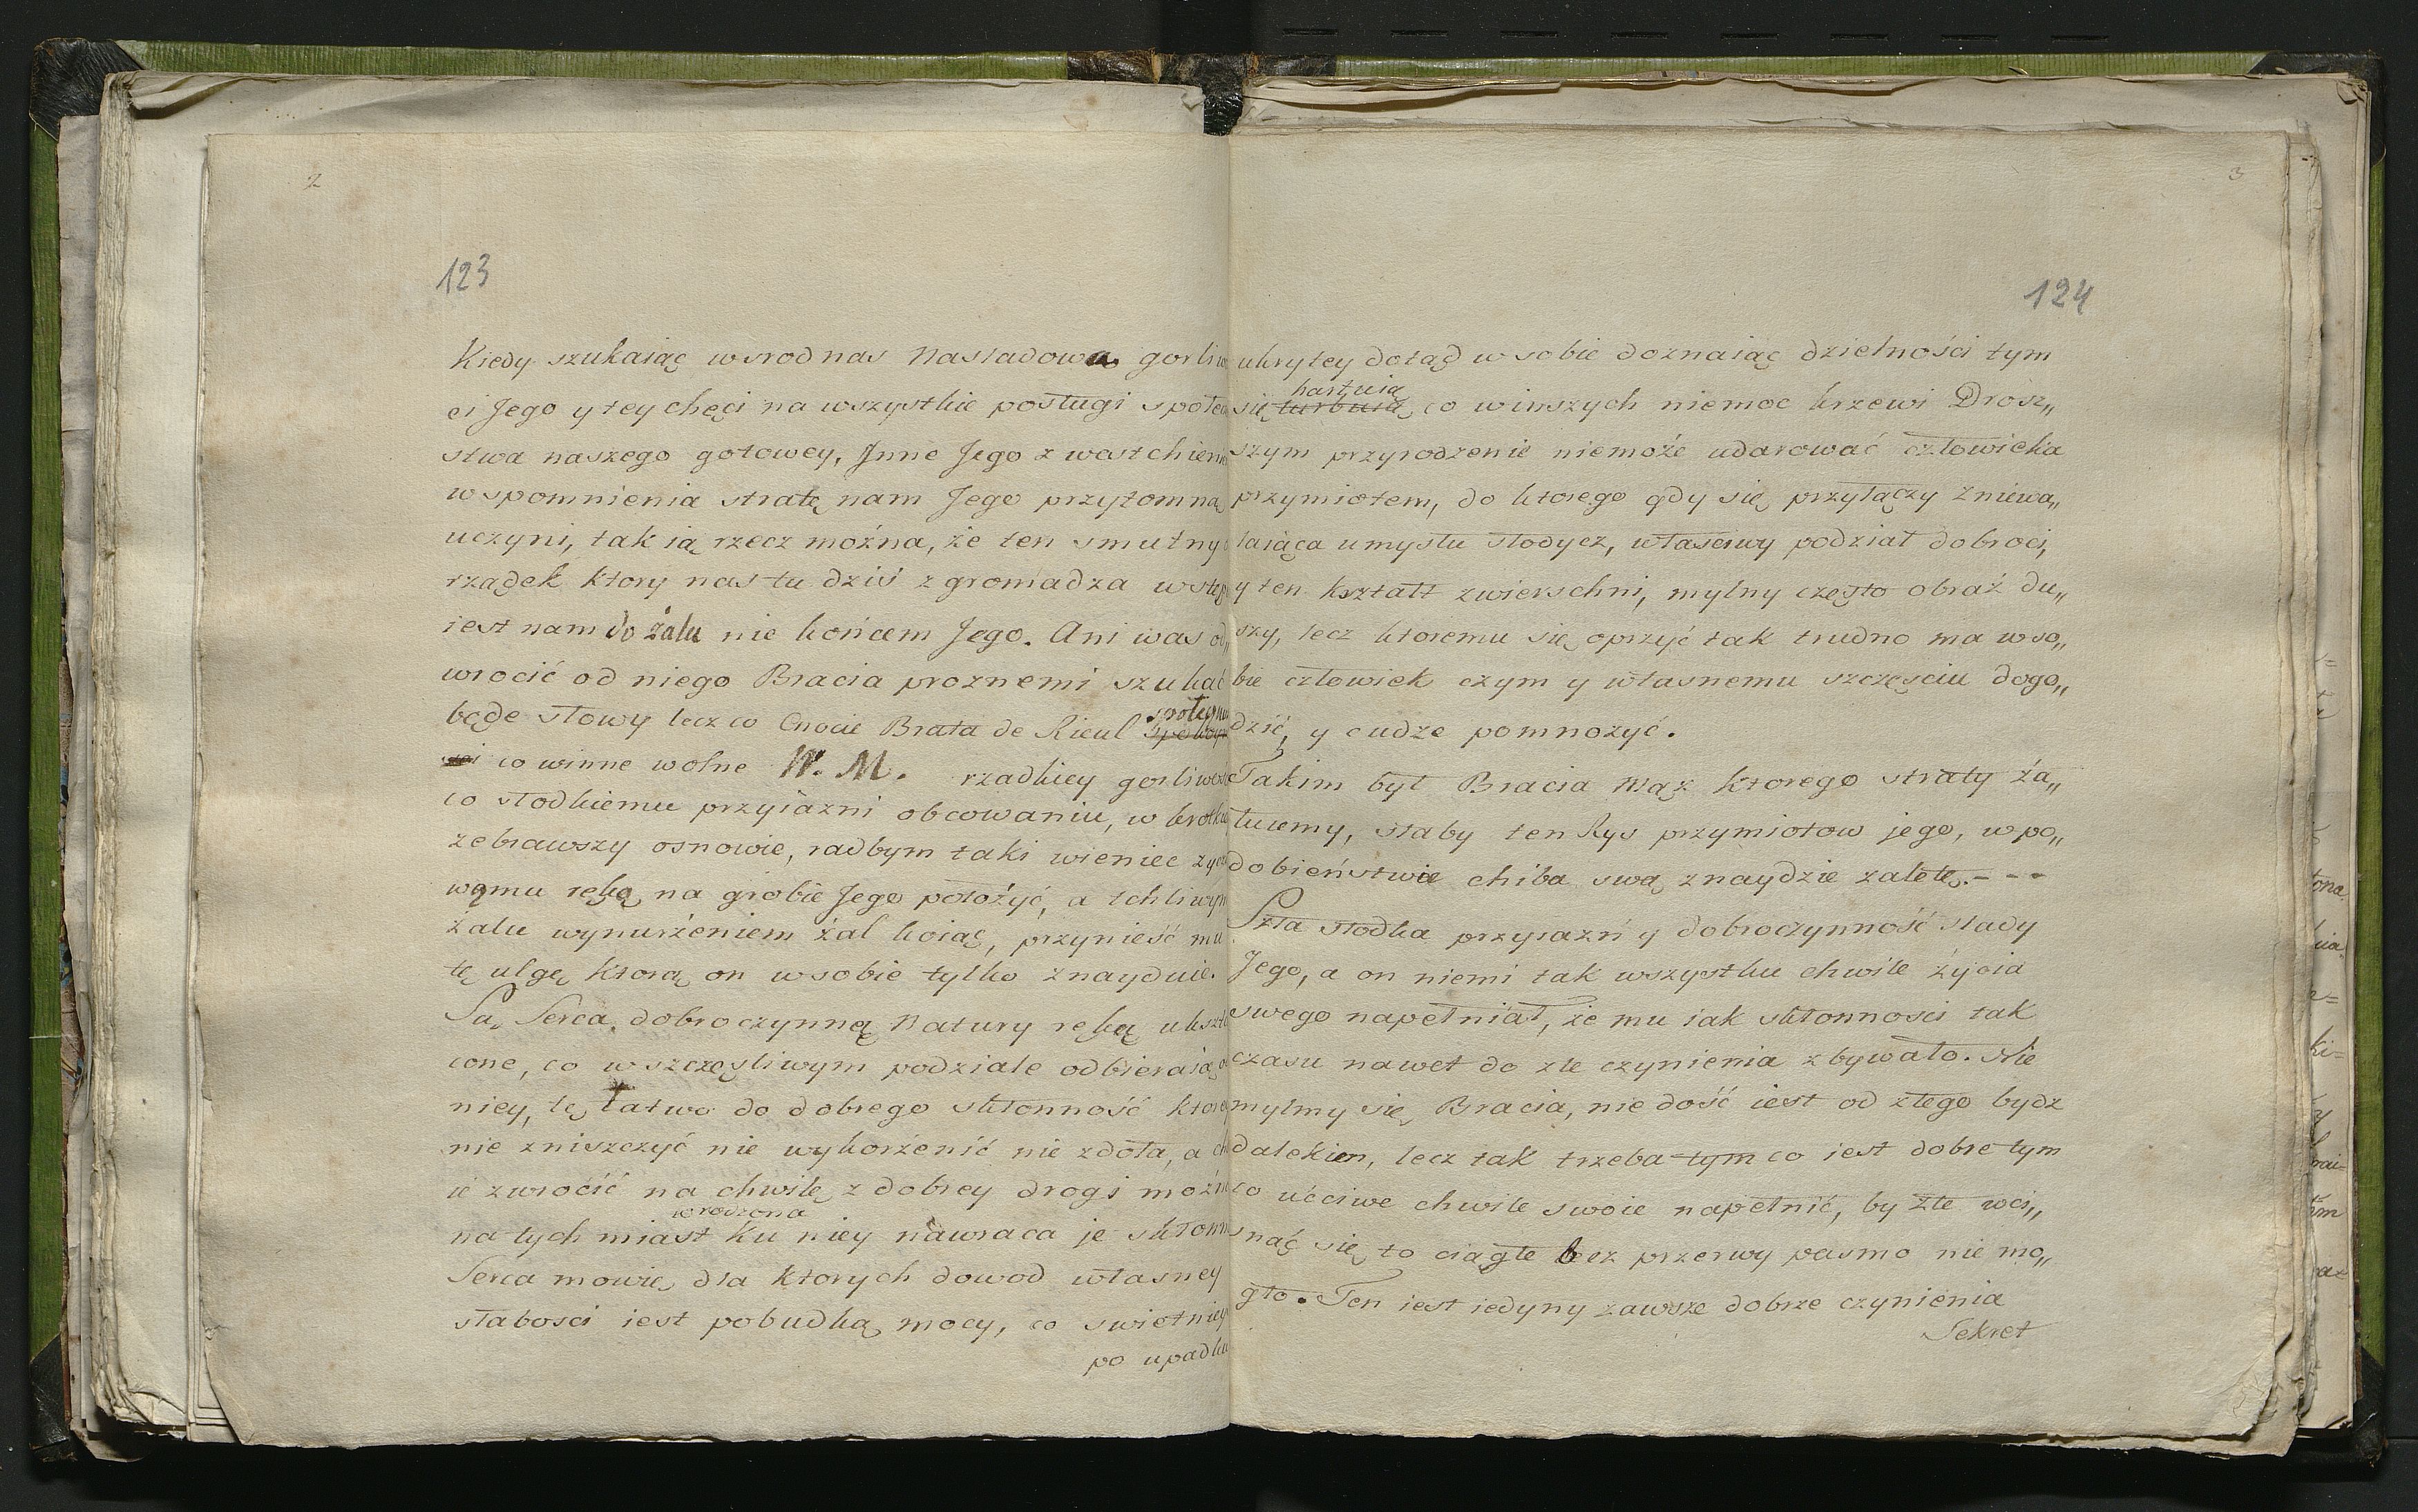 2
123
Kiedy szukaiąc wsrod nas Nasladowa gorliw
ci Jego y tey chęci na wszystkie posługi społec
stwa naszego gotowey, Jnne Jego z westchieni
wspomnienia stratę nam Jego przytomną
uczyni, tak ią rzecz można, że ten smutny
rządek ktory nas tu dziś zgromadza wstęp
iest nam do żalu nie końcem Jego. Ani was od„
wrocić od niego Bracia proznemi szukać
będe słowy lecz co Cnocie Brata de Rieul
co winne wolne W. M. rzadkiey gorliwos
co słodkiemu przyiazni obcowaniu, w krotk
zebrawszy osnowie, radbym taki wieniec życ
wemu ręką na grobie Jego położyć, a tchliwym
żalu wynurżeniem żal koiąc, przynieść mu
tę ulgę ktorą on w sobie tylko znayduie.
Są Serca dobroczynną Natury ręką ukszta
cone, co w szczęsliwym podziale odbieraią o
niey, tę łatwo do dobrego skłonność ktore
nie zniszczyć nie wykorżenić nie zdoła, a ch
ie zwrocić na chwilę z dobrey drogi możn
wrodzona
natychmiast ku niey nawraca je skłonn
Serca mowię dla ktorych dowod własney
słabosci iest pobudką mocy, co swietniey
po upadku
3
124
ukrytey dotąd w sobie doznaiąc dzielności tym
hartuią
się turbuią, co winszych niemoc krzewi Drosz„
szym przyrodzenie niemoże udarować człowieka
przymiotem, do ktorego gdy się przyłączy zniewa„
laiąca umysłu słodycz, własciwy podział dobroci,
y ten kształt zwierschni, mylny często obraz du„
szy, lecz ktoremu się oprzyć tak trudno ma w so„
bie człowiek czym y własnemu szczęsciu dogo„
dzić, y cudze pomnożyć.
Takim był Bracia Mąż ktorego straty ża„
łuiemy, słaby ten Rys przymiotow jego, w po„
dobieństwie chiba swą znaydzie zaletę. - - -
Szła słodka przyiazń y dobroczynność slady
Jego, a on niemi tak wszystkie chwile życia
swego napełniał, że mu iak skłonnosci tak
czasu nawet do zle czynienia zbywało. Nie
mylmy się Bracia, nie dość iest od złego bydz
dalekiem, lecz tak trzeba tym co iest dobre tym
co ućciwe chwile swoie napełnić, by złe wci„
snąć się to ciągłe bez przerwy pasmo nie mo„
gło. Ten iest iedyny zawsze dobrze czynienia
Sekret